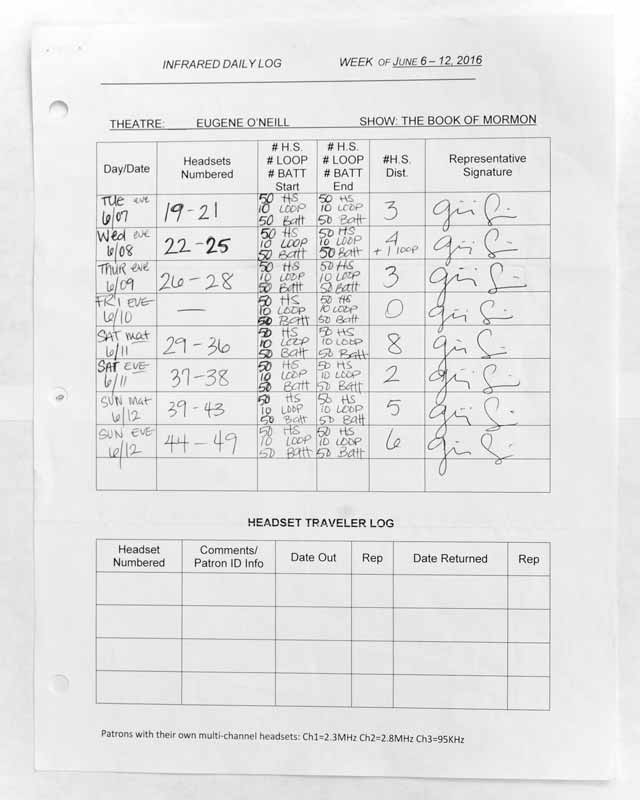 INFRARED DAILY LOG WEEK OF JUNE 6 – 12, 2016
THEATRE: EUGENE O'NEILL SHOW: THE BOOK OF MORMON
Day/Date Headsets Numbered # H.S. # LOOP # BATT Start # H.S. # LOOP # BATT End #H.S. Dist. Representative Signature
TUE eve 6/07 19-21 50 HS 10 LOOP 50 Batt 50 HS 10 LOOP 50 Batt 3
Wed eve 6/08 22-25 50 HS 10 LOOP 50 Batt 50 HS 10 LOOP 50 Batt 4 + 1 loop
THUR eve 6/09 26-28 50 HS 10 LOOP 50 Batt 50 HS 10 LOOP 50 Batt 3
FRI EVE 6/10 — 50 HS 10 LOOP 50 Batt 50 HS 10 LOOP 50 Batt 0
SAT mat 6/11 29-36 50 HS 10 LOOP 50 Batt 50 HS 10 LOOP 50 Batt 8
SAT EVE 6/11 37-38 50 HS 10 LOOP 50 BATT 50 HS 10 LOOP 50 BATT 2
SUN mat 6/12 39-43 50 HS 10 LOOP 50 Batt 50 HS 10 LOOP 50 Batt 5
SUN EVE 6/12 44-49 50 HS 10 LOOP 50 Batt 50 HS 10 LOOP 50 Batt 6
HEADSET TRAVELER LOG
Headset Numbered Comments/ Patron ID Info Date Out Rep Date Returned Rep
Patrons with their own multi-channel headsets: Ch1=2.3MHz Ch2=2.8MHz Ch3=95KHz